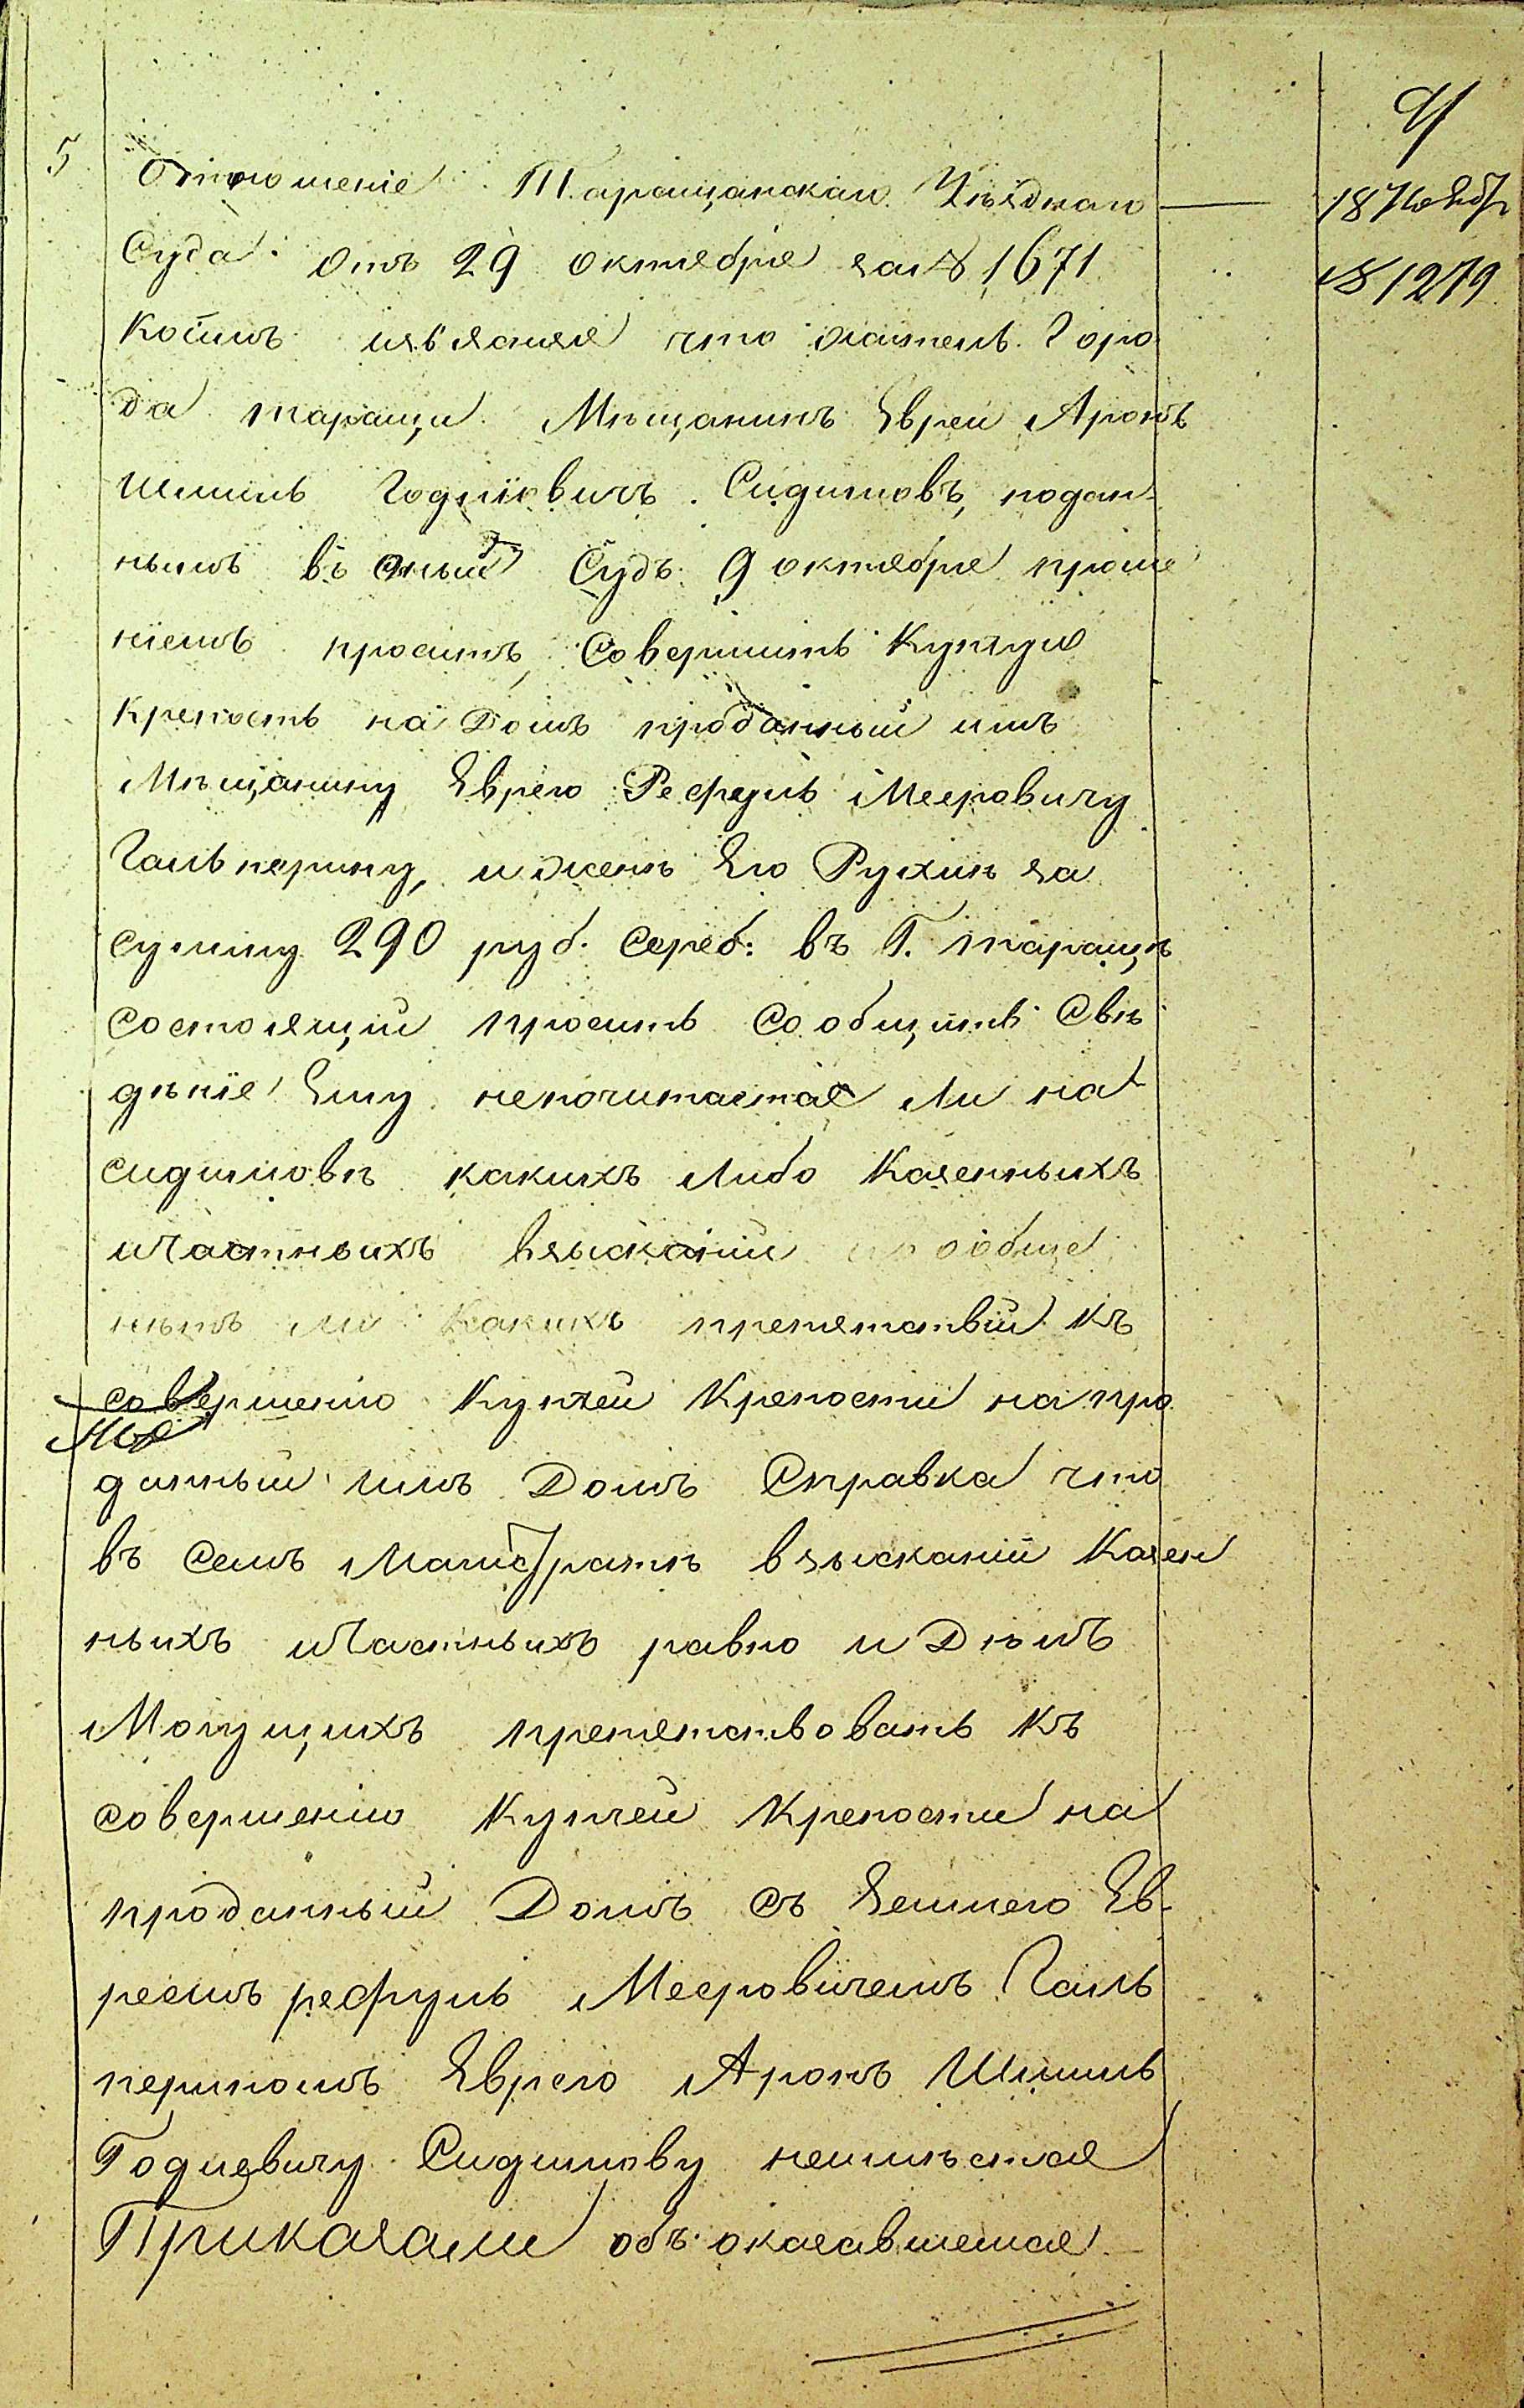 4
5 Отношеніе Таращанскаго Уѣзднаго — 18 Ноябр
Суда отъ 29 октября за № 1671 № 1279
Коимъ изъясняя что житель Горо
да таращи Мѣщанинъ Еврей Аронъ
Шмиль Годиковичъ Сидимовъ, подан-
нымъ въ оный Судъ 9 октября проше
ніемъ проситъ, Совершить Купчую
крепость на Домъ проданный имъ
Мѣщанину Еврею Рефуль Мееровичу
Гальперину, и женѣ Его Рухлѣ за
сумму 290 руб. сереб: въ Г. таращѣ
состоящій проситъ сообщить Свѣ
дѣніе Ему непочитается Ли на
сидимовѣ какихъ Либо Казенныхъ
иЧастныхъ взысканій вообще
нѣтъ ли Какихъ препятствій къ
совершенію Купчей Крепости на про
данный имъ Домъ Справка что
въ семъ Магистратѣ взысканій Казен
ныхъ иЧастныхъ равно и Дѣлъ
Могущихъ препятствовать Къ
совершенію Купчей Крепости на
проданный Домъ съ Земнего Ев-
реемъ рефуль Мееровичемъ Галь
периномъ Еврею Аронъ Шмиль
Годиевичу Сидимову неимѣется
Приказали объ оказавшемся